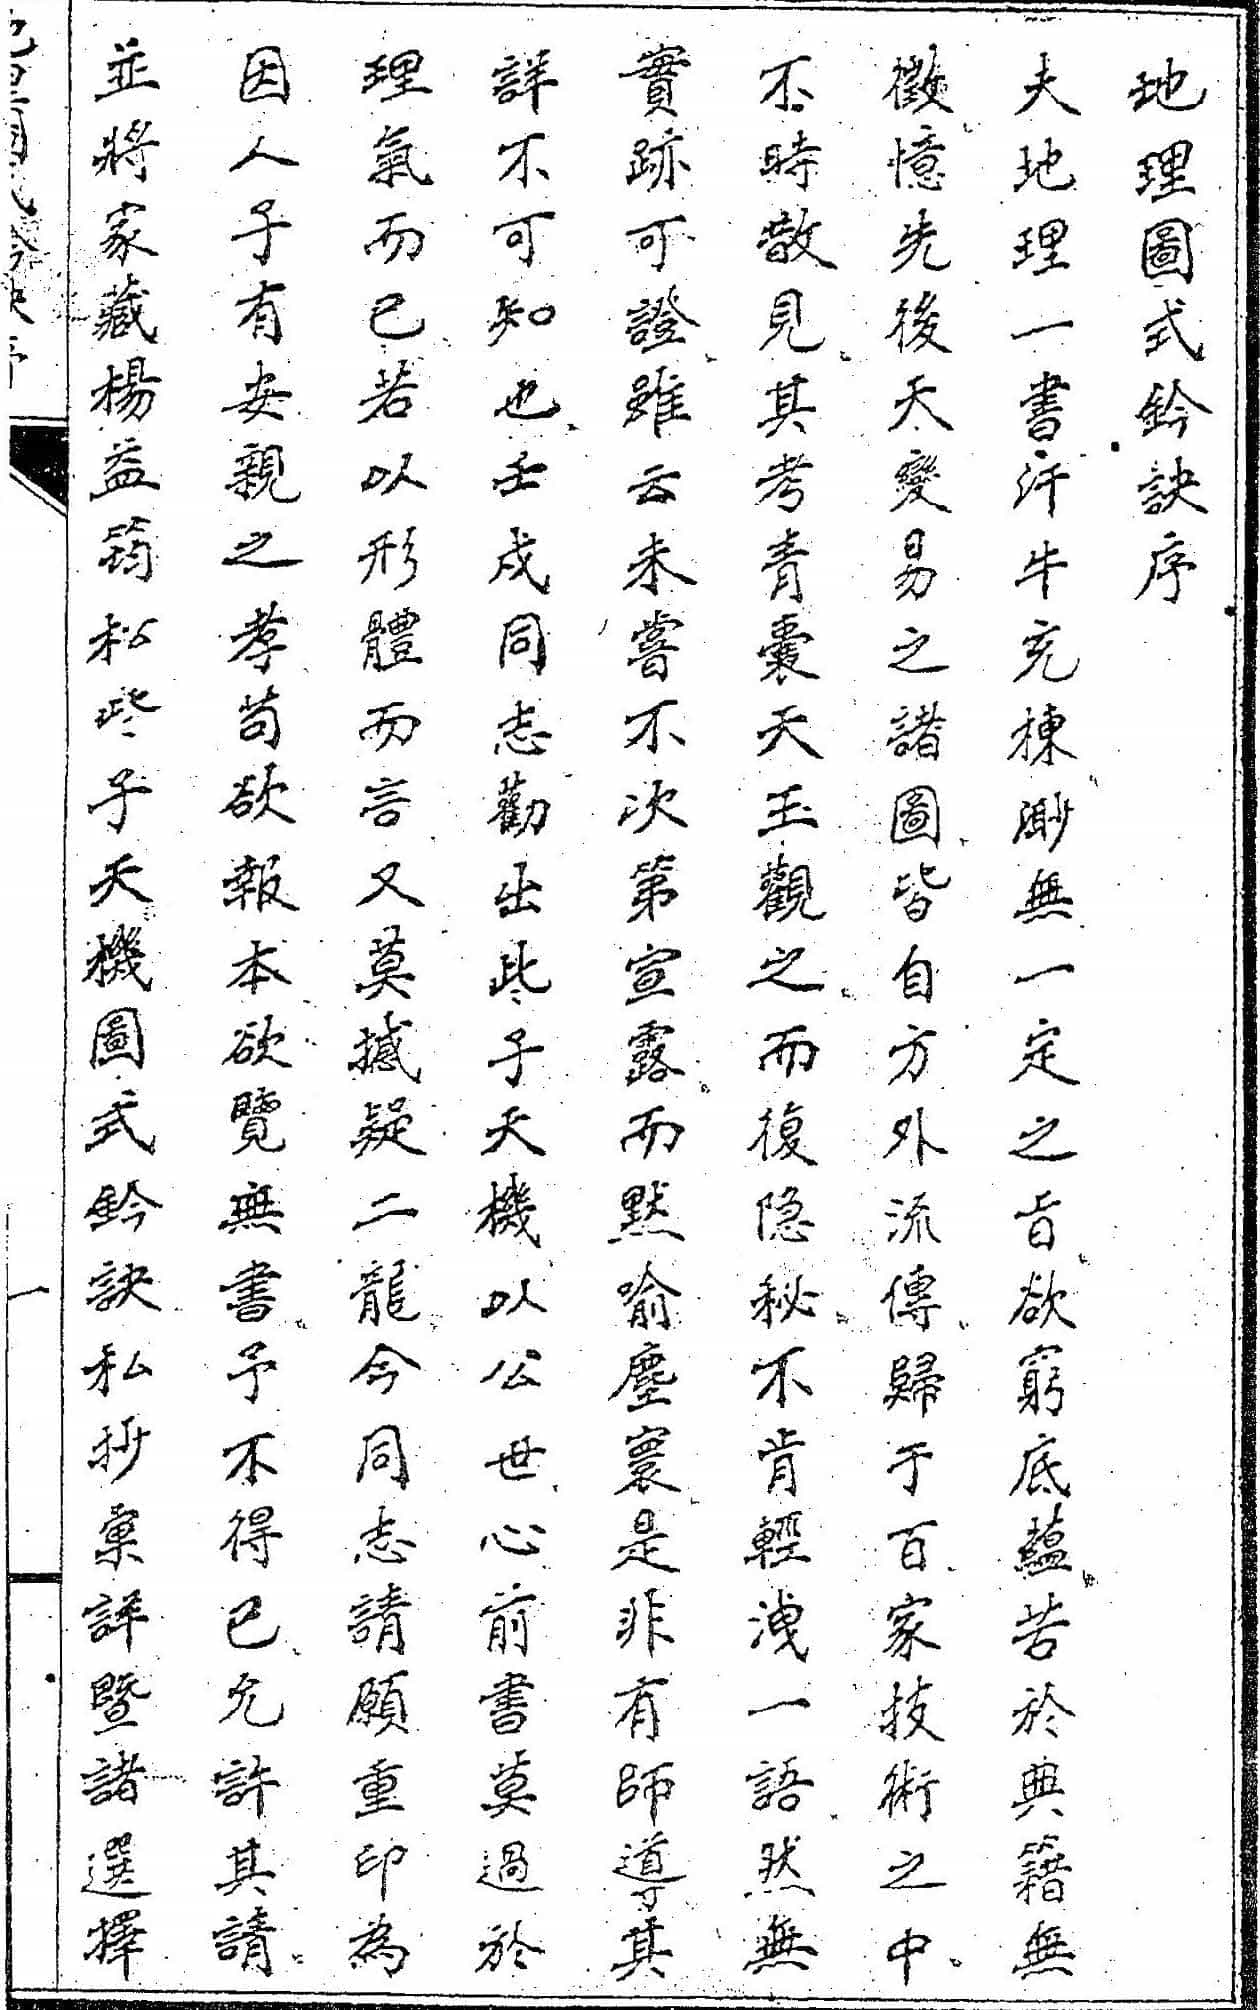 地理圖式鈐訣序
夫地理一書汗牛充棟渺無一定之旨欲窮底蘊苦於典籍無
徵憶先後天變易之諸圖皆自方外流傳歸于百家技術之中
不時散見其考青囊天玉觀之而復隐秘不肯輕洩一語然無
實跡可證雖云未嘗不次第宣露而默喻塵寰是非有師導其
詳不可知也壬戌同志勸出此子天機以公世心前書莫過於
理氣而已若以形體而言又莫撼疑二龍今同志請願重印為
因人子有安親之孝苟欲報本欲覽無書予不得已允許其請
並將家藏楊益筠松些子天機圖式鈐訣私抄彙詳暨諸選擇
一